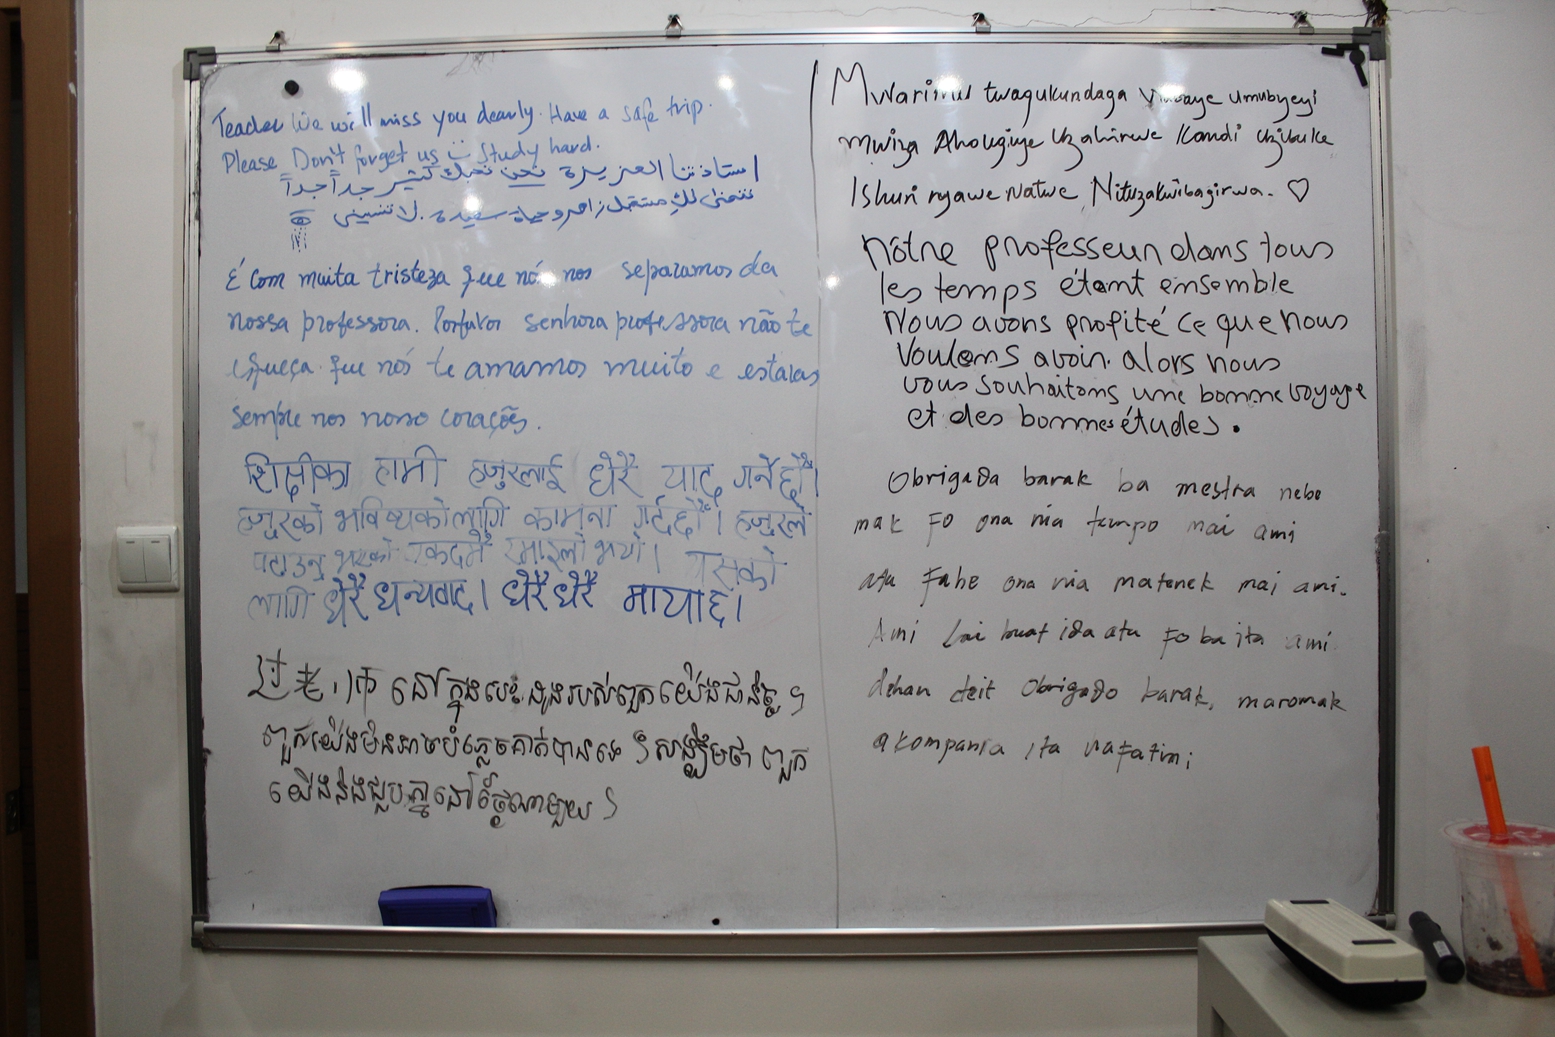 Teacher We will miss you dearly. Have a safe trip.
Please Don't forget us Study hard.
استاذتنا العزيزة نحن نحبك كثير جداً جداً
نتمنى لك مستقبل زاهر وحياة سعيدة. لا تنسيني
É com muita tristeza que nós nos separamos da
nossa professora. Porfavor senhora professora não te
esqueça que nós te amamos muito e estaras
sempre nos nosso corações.
शिक्षीका हामी हजुरलाई धेरै याद गर्नेछौं।
हजुरको भविष्यको लागि कामना गर्दछौं। हजुरले
पढाउनु भएको एकदमै रमाइलो भयो। यसको
लागि धेरै धन्यवाद। धेरै धेरै माया छ।
នៅក្នុងបេះដូងរបស់ពួកយើងជានិច្ច ។
ពួកយើងមិនអាចបំភ្លេចគាត់បានទេ ។ សង្ឃឹមថា ពួក
យើងនឹងជួបគ្នានៅថ្ងៃណាមួយ ។
Mwarimu twagukundaga umubyeyi
mwiza Uzahirwe Kandi Uzibuke
Ishuri ryawe Natwe Nituzakwibagirwa. ♡
Notre professeur dans tous
les temps étant ensemble
Nous avons profité ce que nous
Voulons avoir. alors nous
vous souhaitons une bonne voyage
et des bonnes études.
Obrigado barak ba mestra nebe
mak fo ona nia tempo mai ami
atu fahe ona nia matenek mai ami.
Ami lai buat ida atu fo ba ita ami
dehan deit Obrigado barak, maromak
akompania ita nafatin;